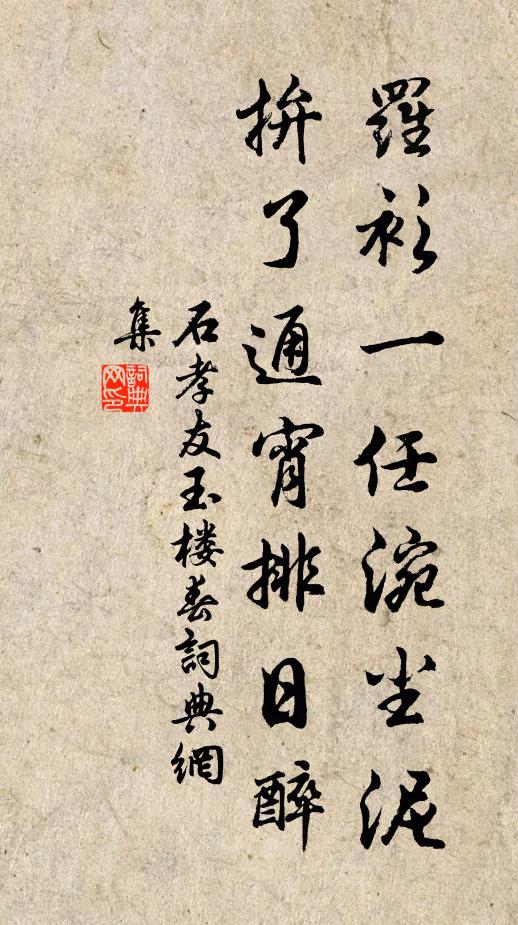 羅衫一任涴尘泥
拚了通宵排日醉
石孝友玉楼春詞典網
集
詞典
网印